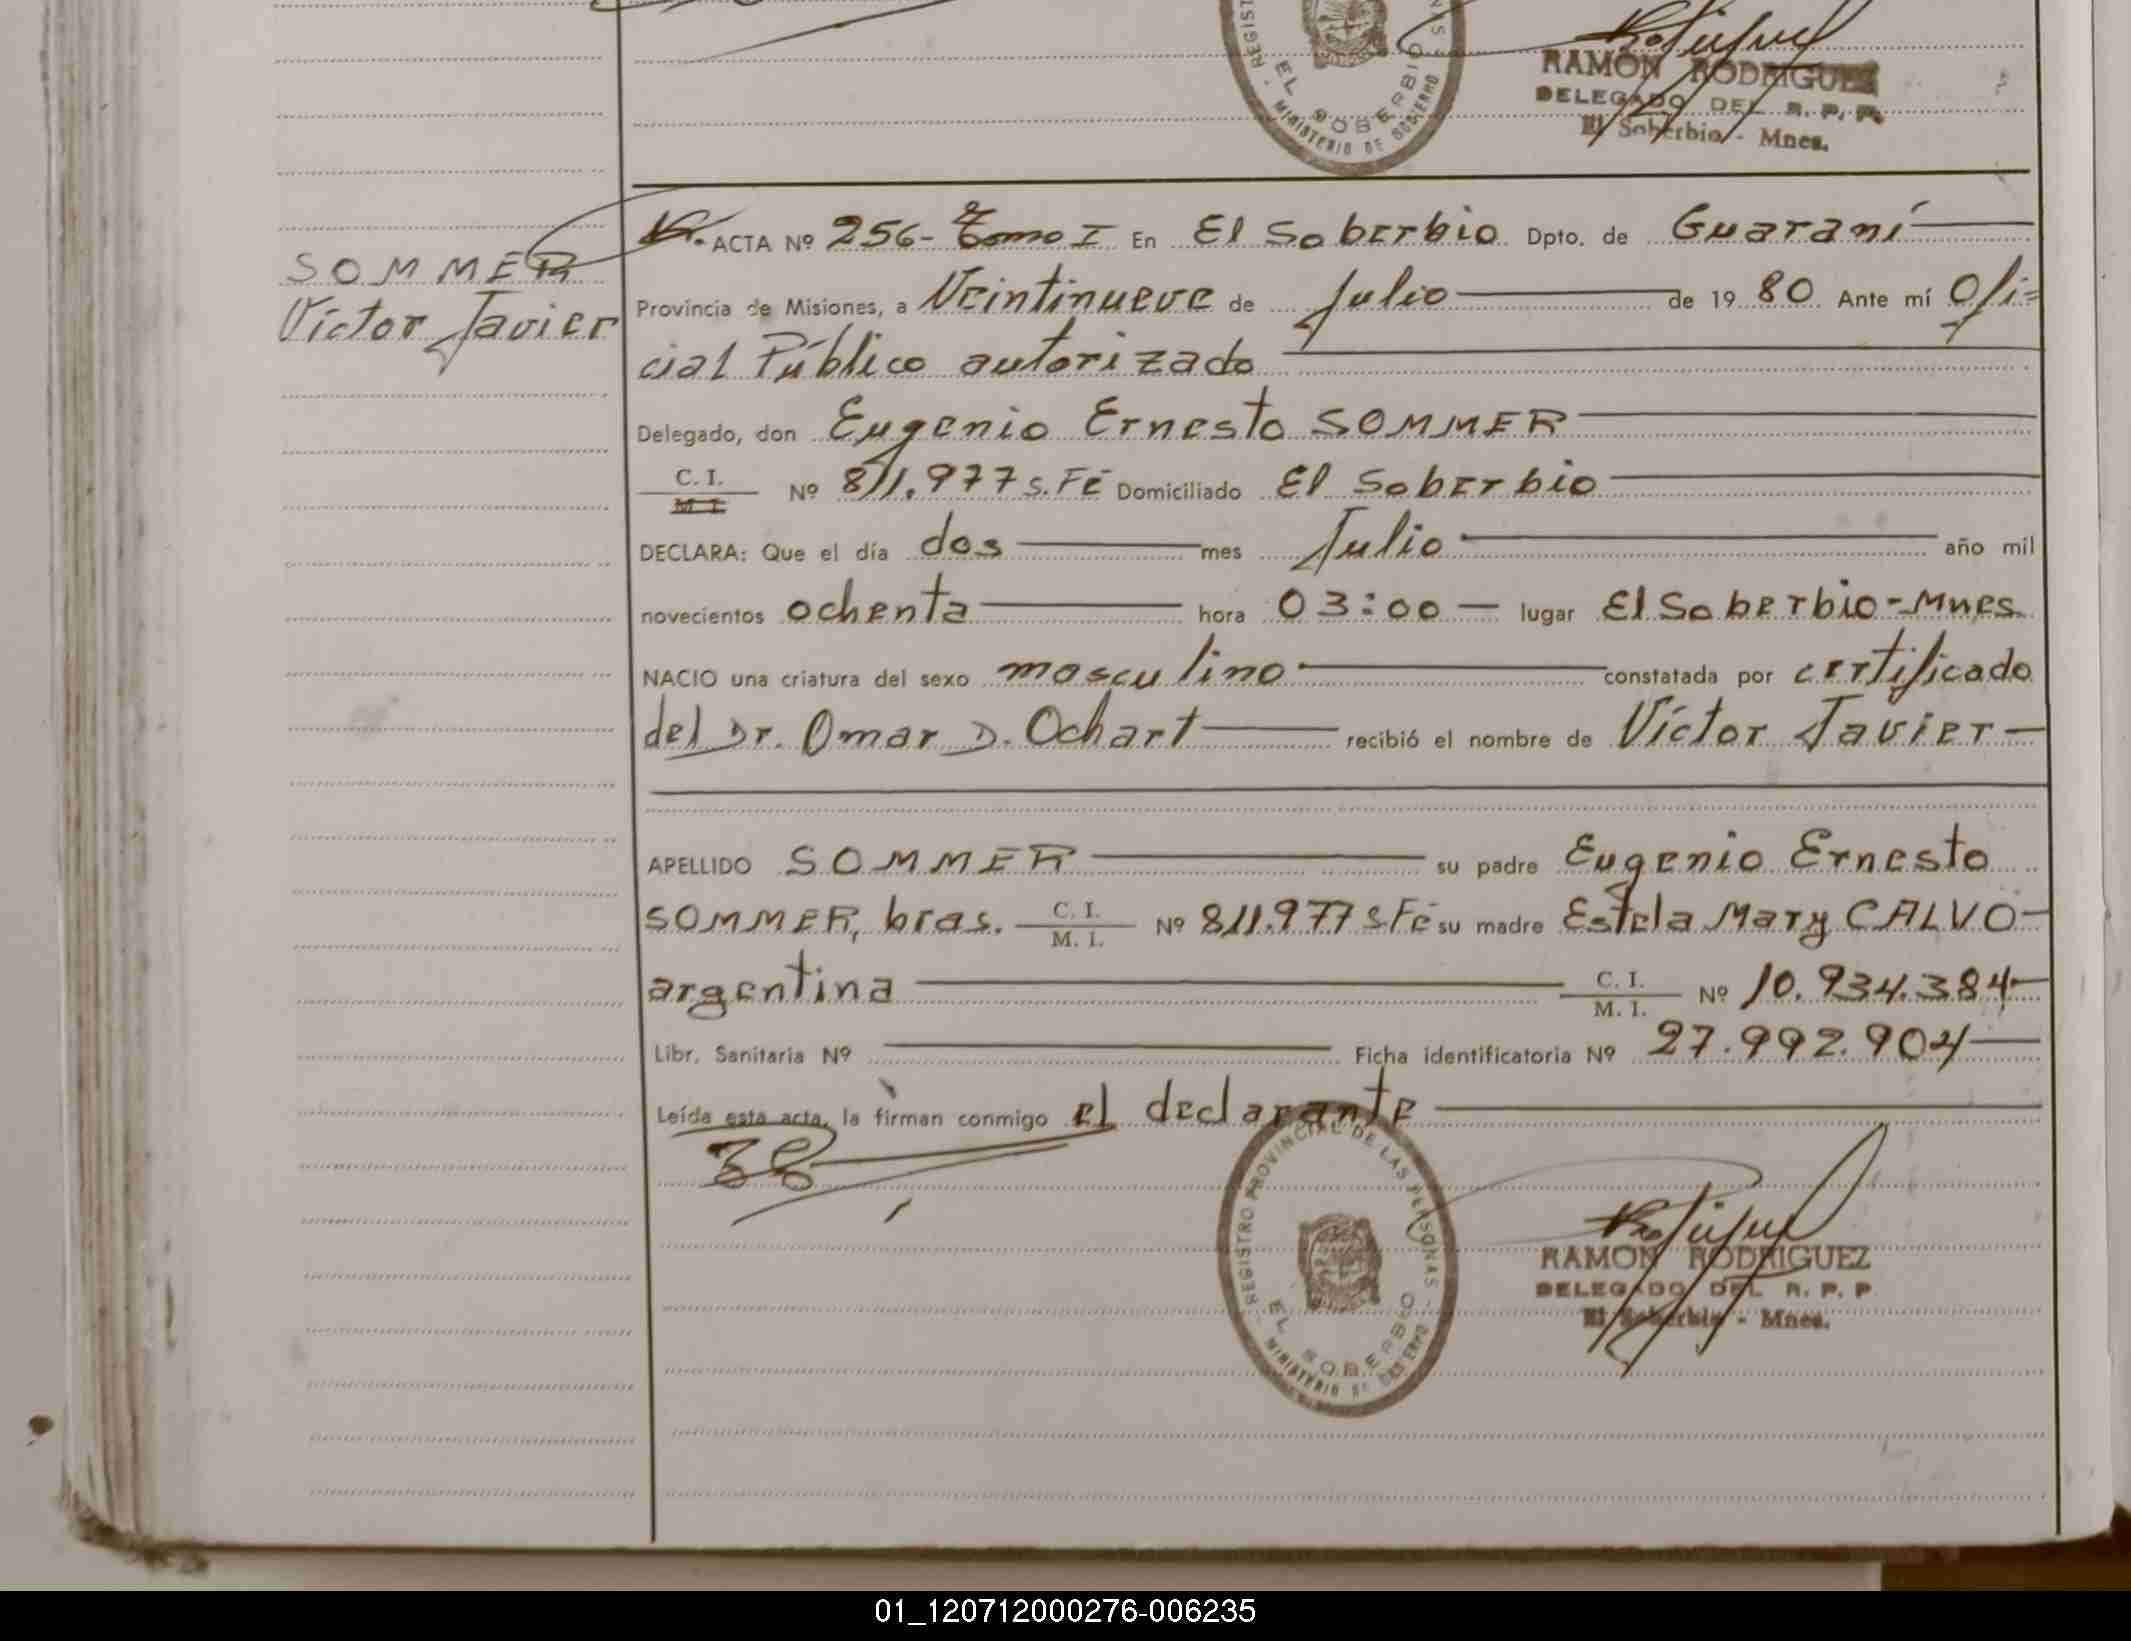 REGISTRO PROVINCIAL DE LAS PERSONAS
EL SOBERBIO
MINISTERIO DE GOBIERNO
RAMON RODRIGUEZ
DELEGADO DEL R. P. P.
El Soberbio - Mnes.
SOMMER
Víctor Javier
ACTA Nº 256- Tomo I En El Soberbio Dpto. de Guaraní
Provincia de Misiones, a Veintinueve de Julio de 19 80 Ante mí Ofi=
cial Público autorizado
Delegado, don Eugenio Ernesto SOMMER
C. I.
M. I. Nº 811.977 S. Fé Domiciliado El Soberbio
DECLARA: Que el día dos mes Julio año mil
novecientos ochenta hora 03:00 lugar El Soberbio-Mnes.
NACIO una criatura del sexo masculino constatada por certificado
del Dr. Omar D. Ochart recibió el nombre de Víctor Javier
APELLIDO SOMMER su padre Eugenio Ernesto
SOMMER, bras. C. I. / M. I. Nº 811.977 S. Fé su madre Estela Mary CALVO
argentina C. I. / M. I. Nº 10.934.384
Libr. Sanitaria Nº Ficha identificatoria Nº 27.992.904
Leída esta acta, la firman conmigo el declarante
REGISTRO PROVINCIAL DE LAS PERSONAS
EL SOBERBIO
MINISTERIO DE GOBIERNO
RAMON RODRIGUEZ
DELEGADO DEL R. P. P
El Soberbio - Mnes.
01_120712000276-006235